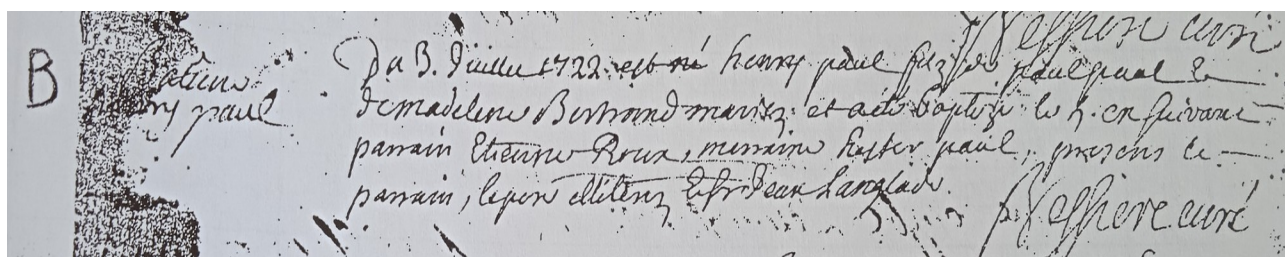 B
henry paul
Du 3. Juillet 1722 est né henry paul filz de paul paul &
de madeleine Bertrand mariez. et a été baptizé le 5. ensuivant
parrain Etienne Roux, marraine hester paul, presens le
parrain, le pere illiterez & Sr Jean Langlade.
curé
curé